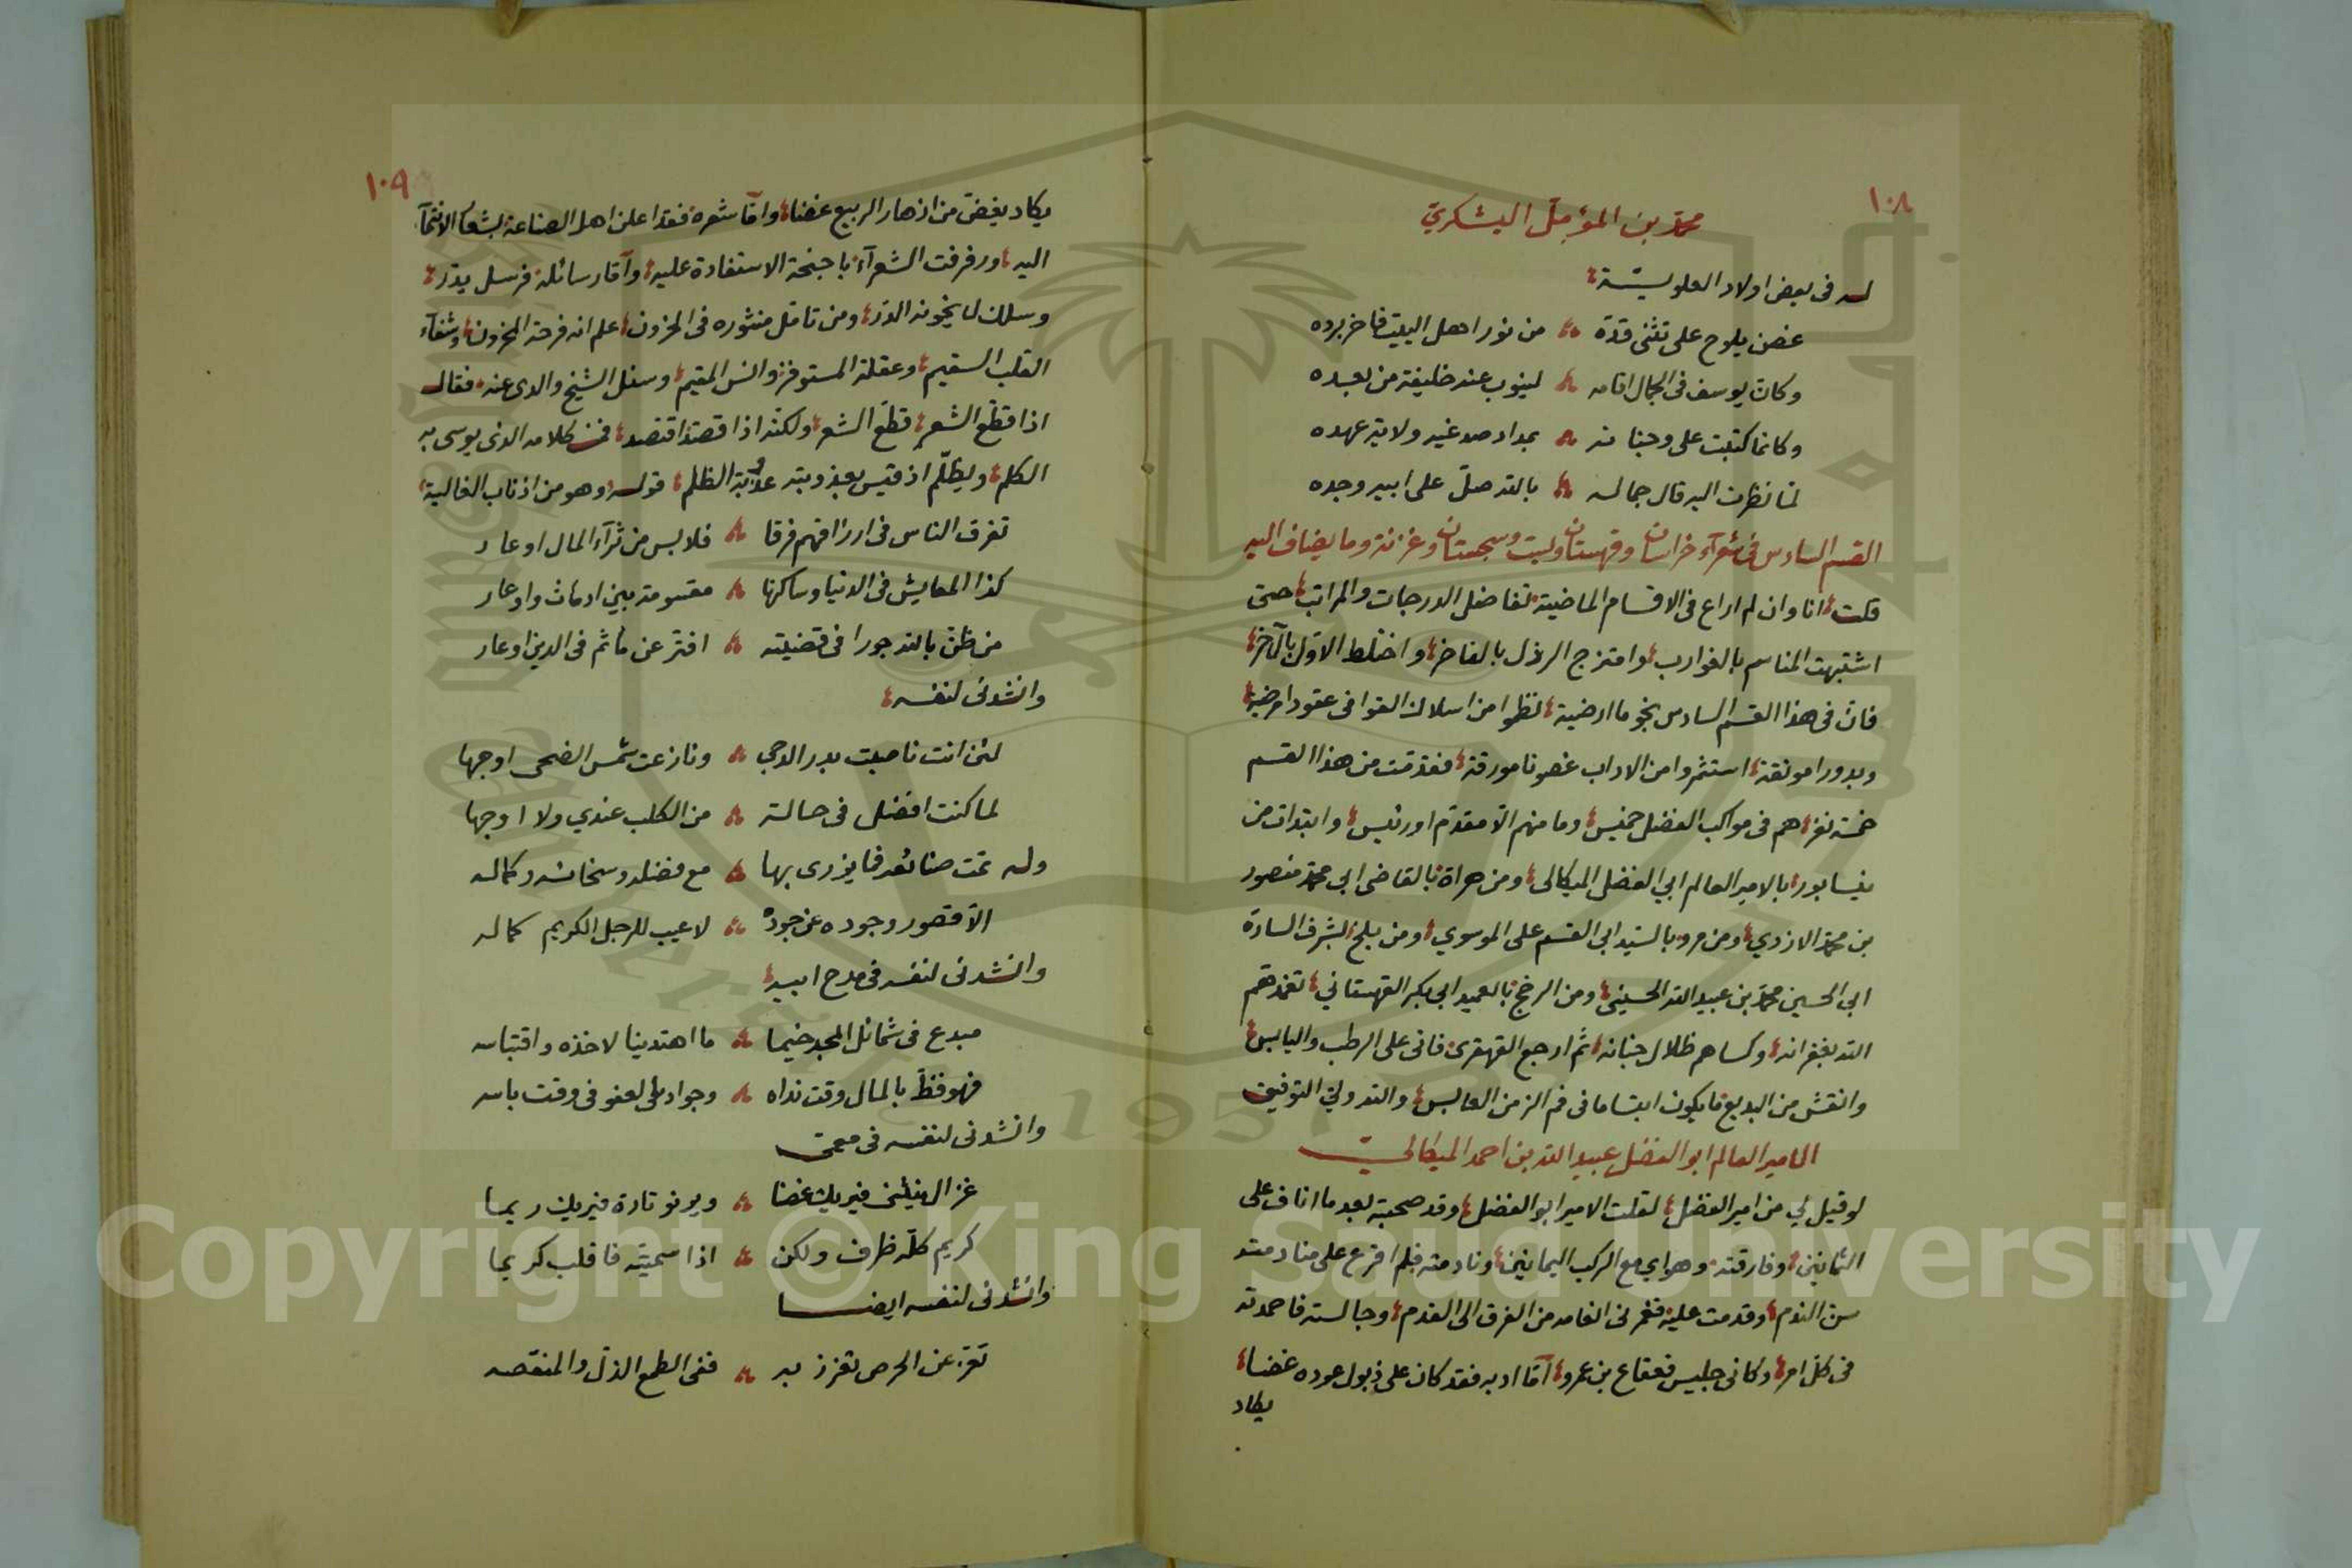 ١٠٨
محمد بن المؤمل اليشكري
له في بعض اولاد العلوية
غصن يلوح على تثنى قده من نور اهل البيت فاخر برده
وكان يوسف في الجمال اقامه لينوب عنه خليفة من بعده
وكانما كتبت على وجناته بمداد صدغيه ولاية عهده
لما نظرت اليه قال جماله بالله صل على ابيه وجده
القسم السادس في شعرآء خراسان وقهستان وبست وسجستان وغزنة وما يضاف اليه
قلت انا وان لم اراع في الاقسام الماضية تفاضل الدرجات والمراتب حتى
اشتبهت المناسم بالغوارب وامتزج الرذل بالفاخر واختلط الاول بالآخر
فان في هذا القسم السادس نجوما ارضية نظموا من اسلاك القوافى عقودا مرضية
وبدورا مونقة استثمروا من الاداب غصونا مورقة فقدمت من هذا القسم
خمسة نفر هم في مواكب الفضل خميس وما منهم الا مقدم او رئيس وابتدات من
نيسابور بالامير العالم ابي الفضل الميكالى ومن هراة بالقاضى ابى محمد منصور
بن محمد الازدي ومن مرو بالسيد ابى القسم على الموسوي ومن بلخ بشرف السادة
ابى الحسين محمد بن عبيد الله الحسينى ومن الرخج بالعميد ابى بكر القهستاني تغمدهم
الله بغفرانه وكساهم ظلال جنانه ثم ارجع القهقرى فاتى على الرطب واليابس
وانقش من البديع ما يكون ابتساما في فم الزمن العابس والله ولي التوفيق
الامير العالم ابو الفضل عبيد الله بن احمد الميكالي
لو قيل لي من امير الفضل لقلت الامير ابو الفضل وقد صحبته بعد ما اناف على
الثمانين وفارقته وهواي مع الركب اليمانين ونادمته فلم اقرع على منادمته
سن الندم وقدمت عليه فغمرنى انعامه من الفرق الى القدم وجالسته فاحمدته
في كل امر وكانى جليس قعقاع بن عمرو اما ادبه فقد كان على ذبول عوده غضا
يكاد
١٠٩
يكاد يغض من ازهار الربيع غضا واما شعره فقد اعلن اهل الصناعة بشعار الانتمآ
اليه ورفرفت الشعرآء باجنحة الاستفادة عليه وآما رسائله فرسل يدر
وسلك لا يخونه الدر ومن تامل منثوره في المخزون علم انه فرحة المحزون وشفآء
القلب السقيم وعقلة المستوفز وانس المقيم وسئل الشيخ والدى عنه فقال
اذا قطع الشعر قطع الشعر ولكنه اذا قصد اقتصد فمن كلامه الذى يوسى به
الكلم ويظلم اذ قيس بعذوبته عذوبة الظلم قوله وهو من اذناب الغالية
تفرق الناس في ارزاقهم فرقا فلابس من ثرآء المال او عار
كذا المعايش في الدنيا وساكنها مقسومة بين ادماث واوعار
من ظن بالله جورا في قضيته افتر عن مأثم في الدين او عار
وانشدنى لنفسه
لئن انت ناصبت بدر الدجى ونازعت شمس الضحى اوجها
لما كنت افضل في حالة من الكلب عندي ولا اوجها
وله تمت صنائعه فما يزرى بها مع فضله وسخائه وكماله
الا قصور وجوده عن جوده لا عيب للرجل الكريم كماله
وانشدنى لنفسه في مدح ابيه
مبدع في شمائل المجد خيما ما اهتدينا لاخذه واقتباسه
فهو فظ بالمال وقت نداه وجواد بالعفو في وقت باسه
وانشدنى لنفسه في معمى
غزال ينثنى فيريك غصنا ويرنو تارة فيريك ريما
كريم كله ظرف ولكن اذا سميته فاقلب كريما
وانشدنى لنفسه ايضا
تعز عن الحرص تعزز به ففى الطمع الذل والمنقصه
Copyright © King Saud University
1957